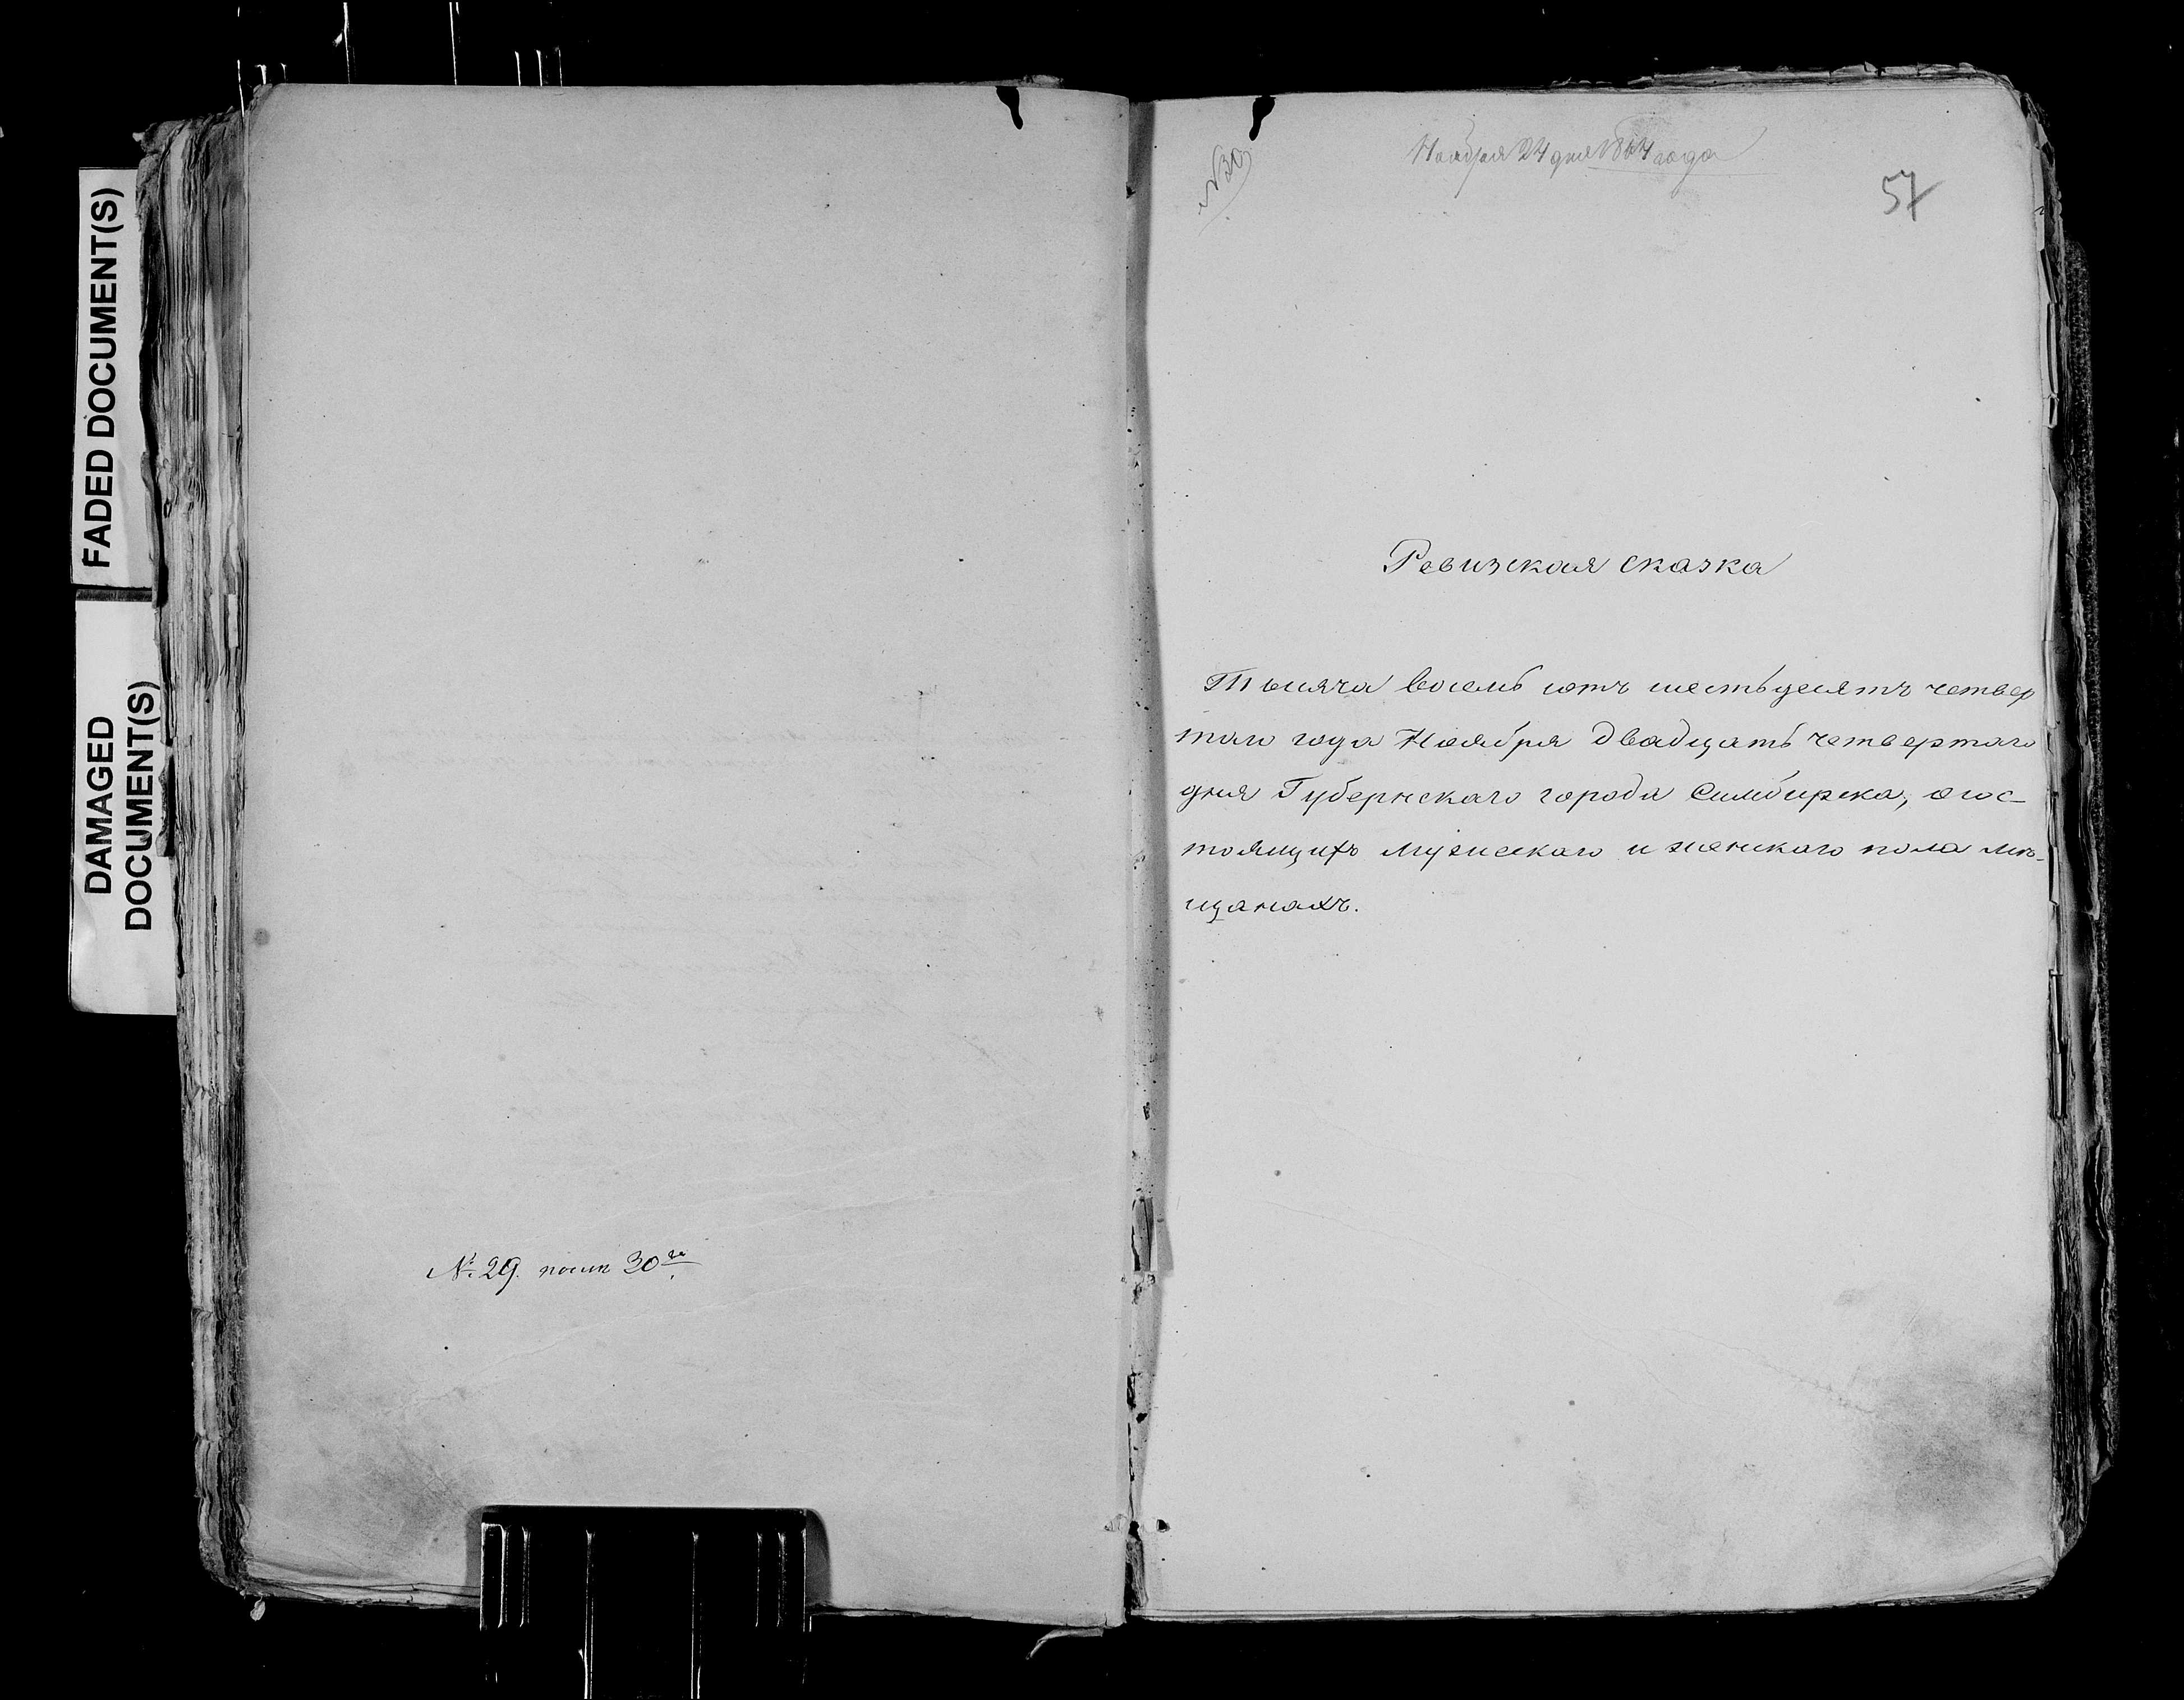 FADED DOCUMENT(S)
DAMAGED
DOCUMENT(S)
№ 29. посли 30го
№30
Ноября 24 дня 1864 года
57
Ревизская сказка
Тысяча восемь сотъ шестьдесятъ четвер
таго года Ноября двадцать четвертаго
дня Губернскаго города Симбирска, о сос-
тоящихъ мужескаго и женскаго пола мѣ-
щанахъ.